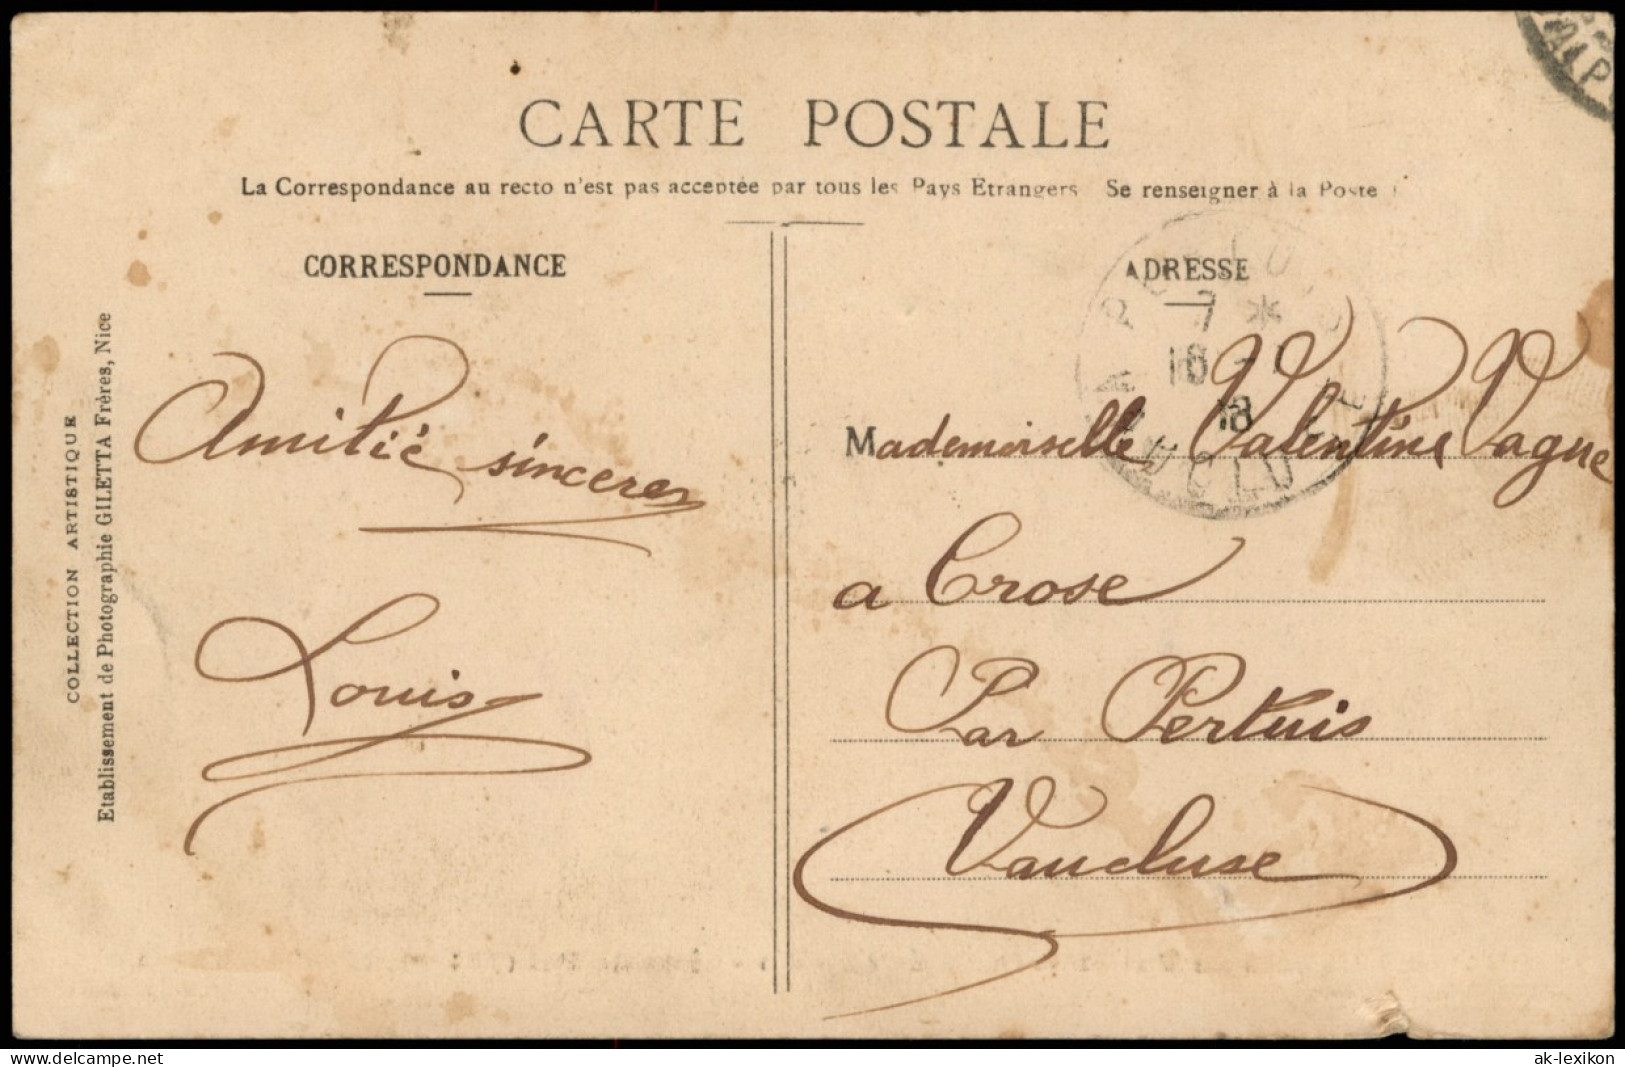 CARTE POSTALE
La Correspondance au recto n'est pas acceptée par tous les Pays Etrangers Se renseigner à la Poste
CORRESPONDANCE
ADRESSE
COLLECTION ARTISTIQUE
Etablissement de Photographie GILETTA Frères, Nice
Amitié sinceres
Louis
Mademoiselle Valentine Vague
a Crose
Par Pertuis
Vaucluse
7 *
18
VAUCLUSE
delcampe.net
ak-lexikon